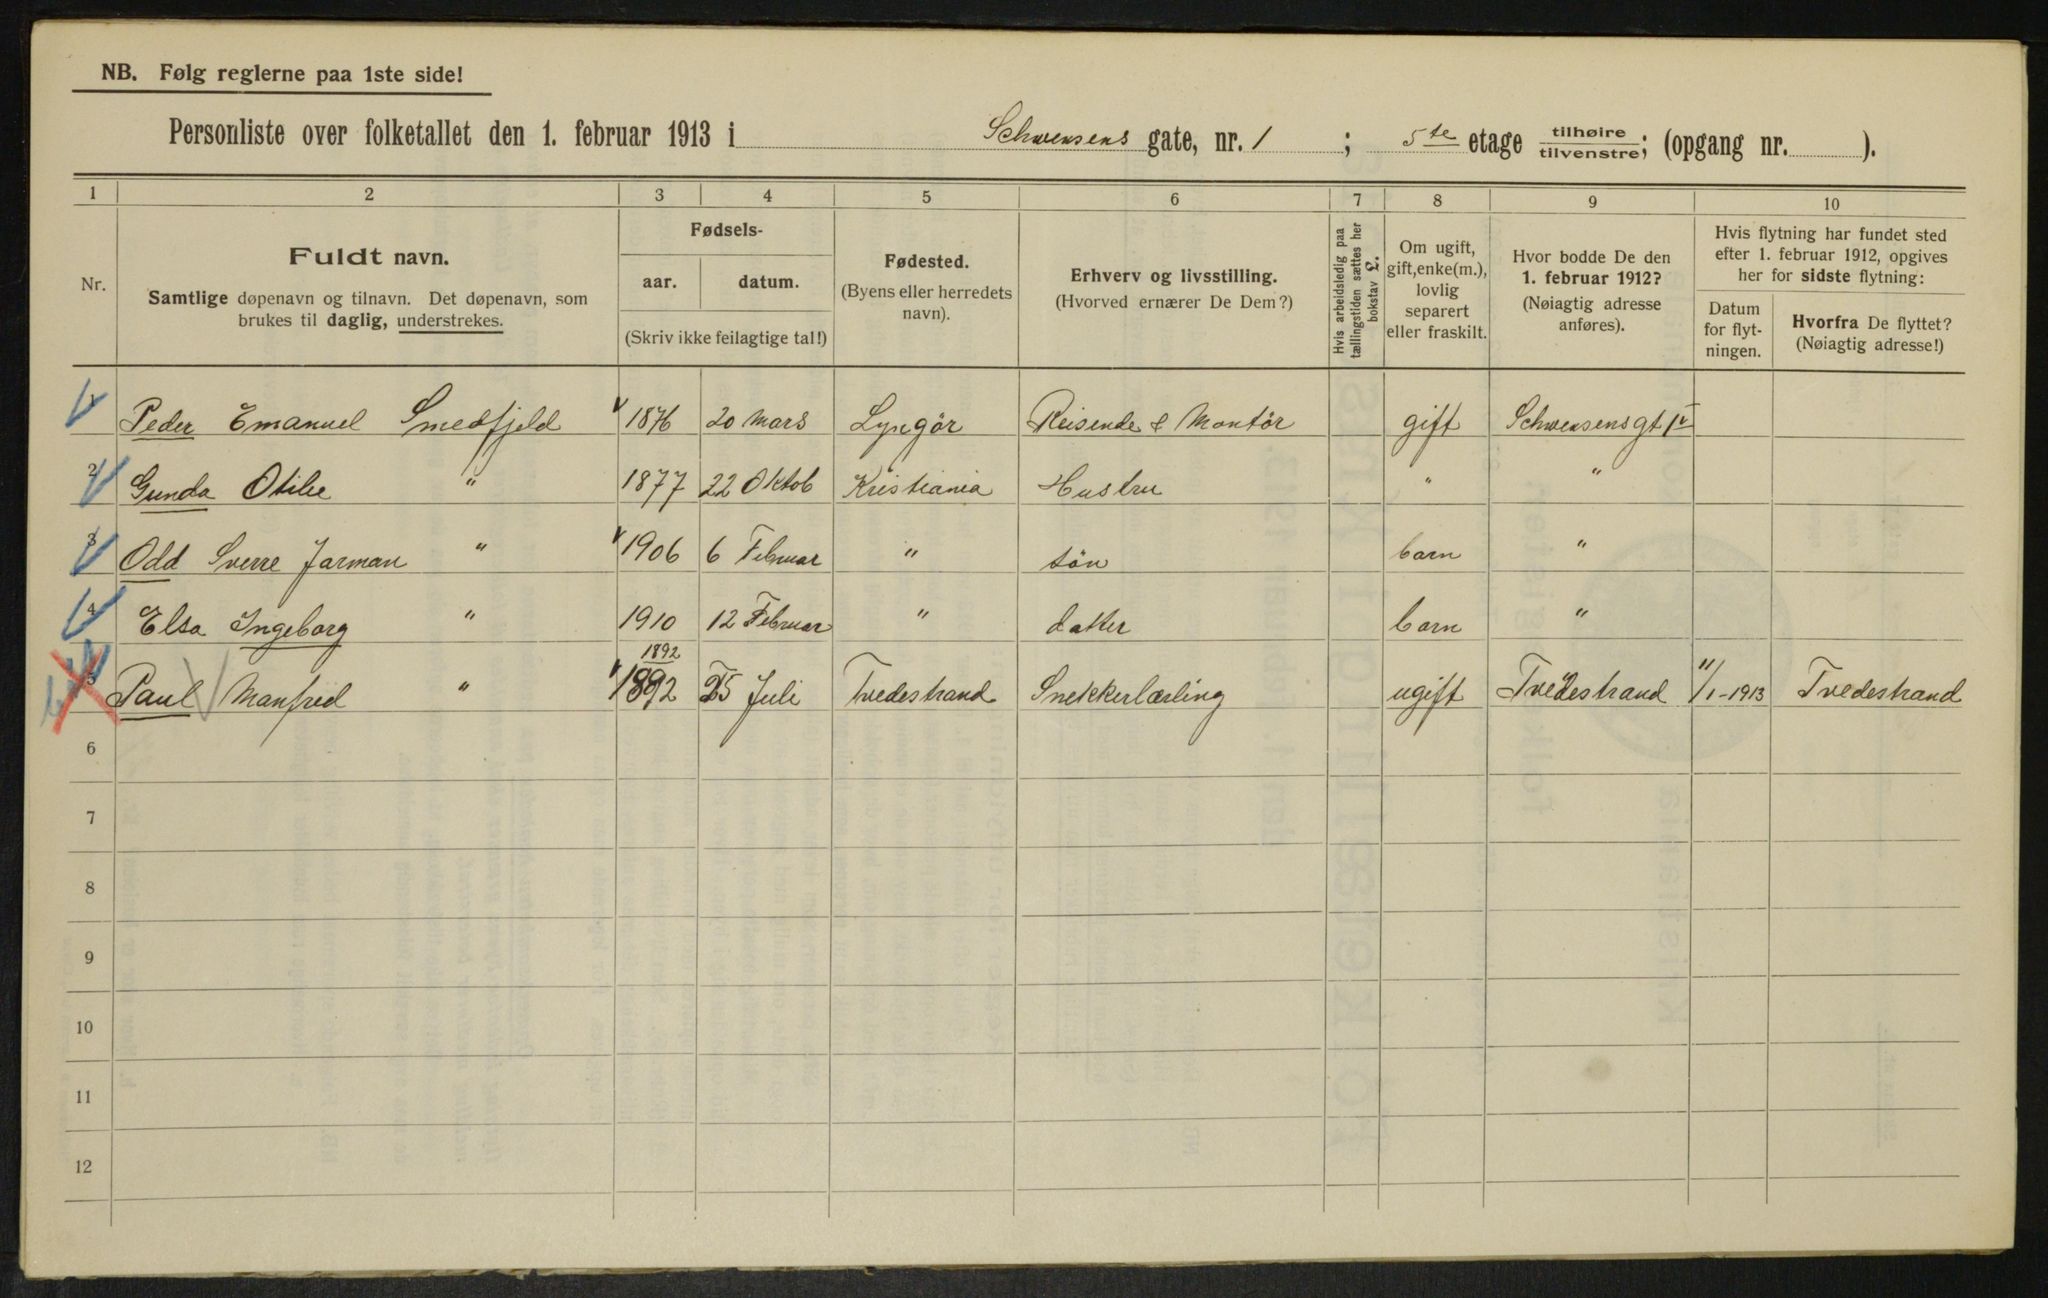 NB. Følg reglerne paa 1ste side!
Personliste over folketallet den 1. februar 1913 i Schwensens gate, nr. 1 ; 5te etage tilhøire/tilvenstre; (opgang nr. ).
1 2 3 4 5 6 7 8 9 10
Nr.
Fuldt navn.
Samtlige døpenavn og tilnavn. Det døpenavn, som
brukes til daglig, understrekes.
Fødsels-
aar. datum.
(Skriv ikke feilagtige tal!)
Fødested.
(Byens eller herredets
navn).
Erhverv og livsstilling.
(Hvorved ernærer De Dem?)
Hvis arbeidsledig paa
tællingstiden sættes her
bokstav L.
Om ugift,
gift, enke(m.),
lovlig
separert
eller fraskilt.
Hvor bodde De den
1. februar 1912?
(Nøiagtig adresse
anføres).
Hvis flytning har fundet sted
efter 1. februar 1912, opgives
her for sidste flytning:
Datum
for flyt-
ningen.
Hvorfra De flyttet?
(Nøiagtig adresse!)
1 Peder Emanuel Smedfjeld 1876 20 Mars Lyngör Reisende & Montör gift Schwensensgt 1
2 Gunda Otilie " 1877 22 Oktob Kristiania Hustru " "
3 Odd Sverre Jarman " 1906 6 Februar " sön barn "
4 Elsa Ingeborg " 1910 12 Februar " datter barn "
1892
5 Paul Manfred " 1892 25 Juli Tvedestrand Snekkerlærling ugift Tvedestrand 11/1-1913 Tvedestrand
6
7
8
9
10
11
12